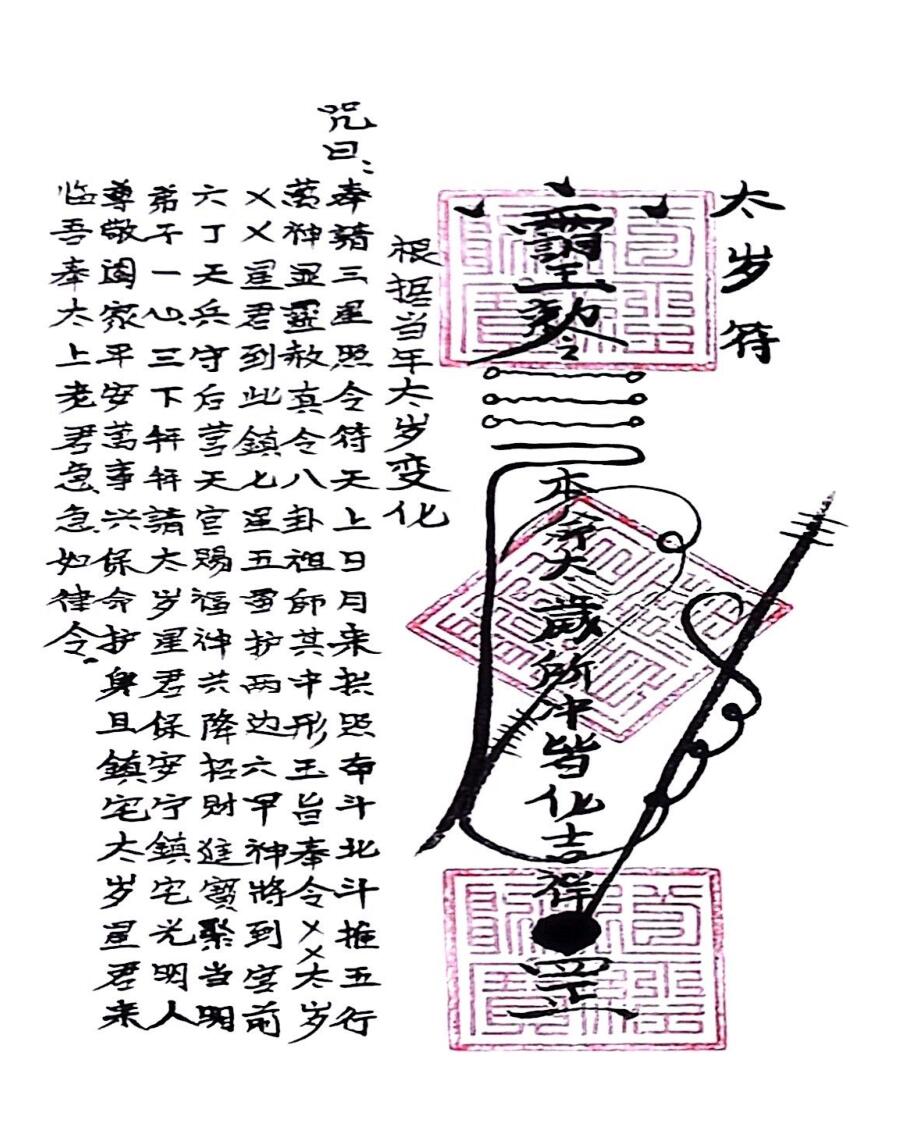 太岁符
玉勅令
本太歲所冲皆化吉祥
罡
根据当年太岁变化
咒曰：
奉請三星照令符天上日月来拱照南斗北斗推五行
萬神显靈赦真令八卦祖師其中形玉旨奉令××太岁
××星君到此鎮七星五雷护两边六甲神將到宫前
六丁天兵守后营天官賜福神共降招财進寶聚当明
弟子一心三下拜拜請太岁星君保安宁鎮宅光明人
尊敬阖家平安萬事兴保命护身且鎮宅太岁星君来
临吾奉太上老君急急如律令.